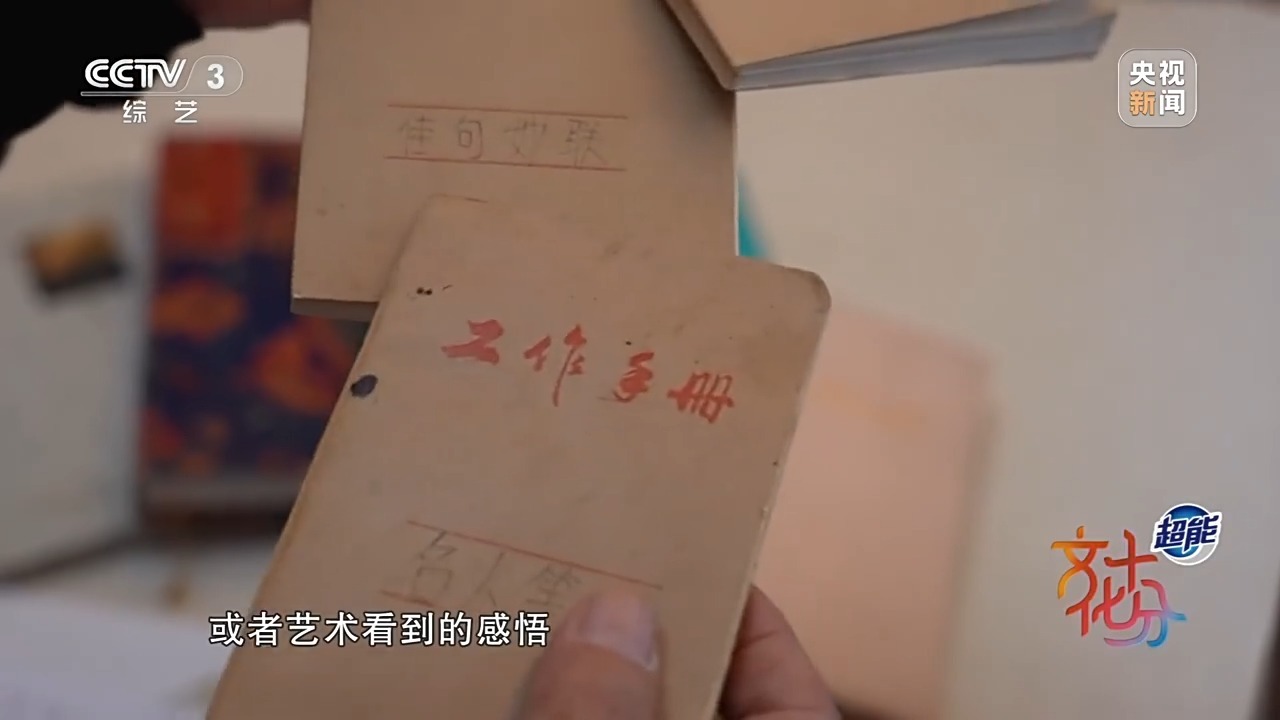 CCTV 3
综艺
央视
新闻
佳句妙联
工作手册
名人
或者艺术看到的感悟
超能
文化十分